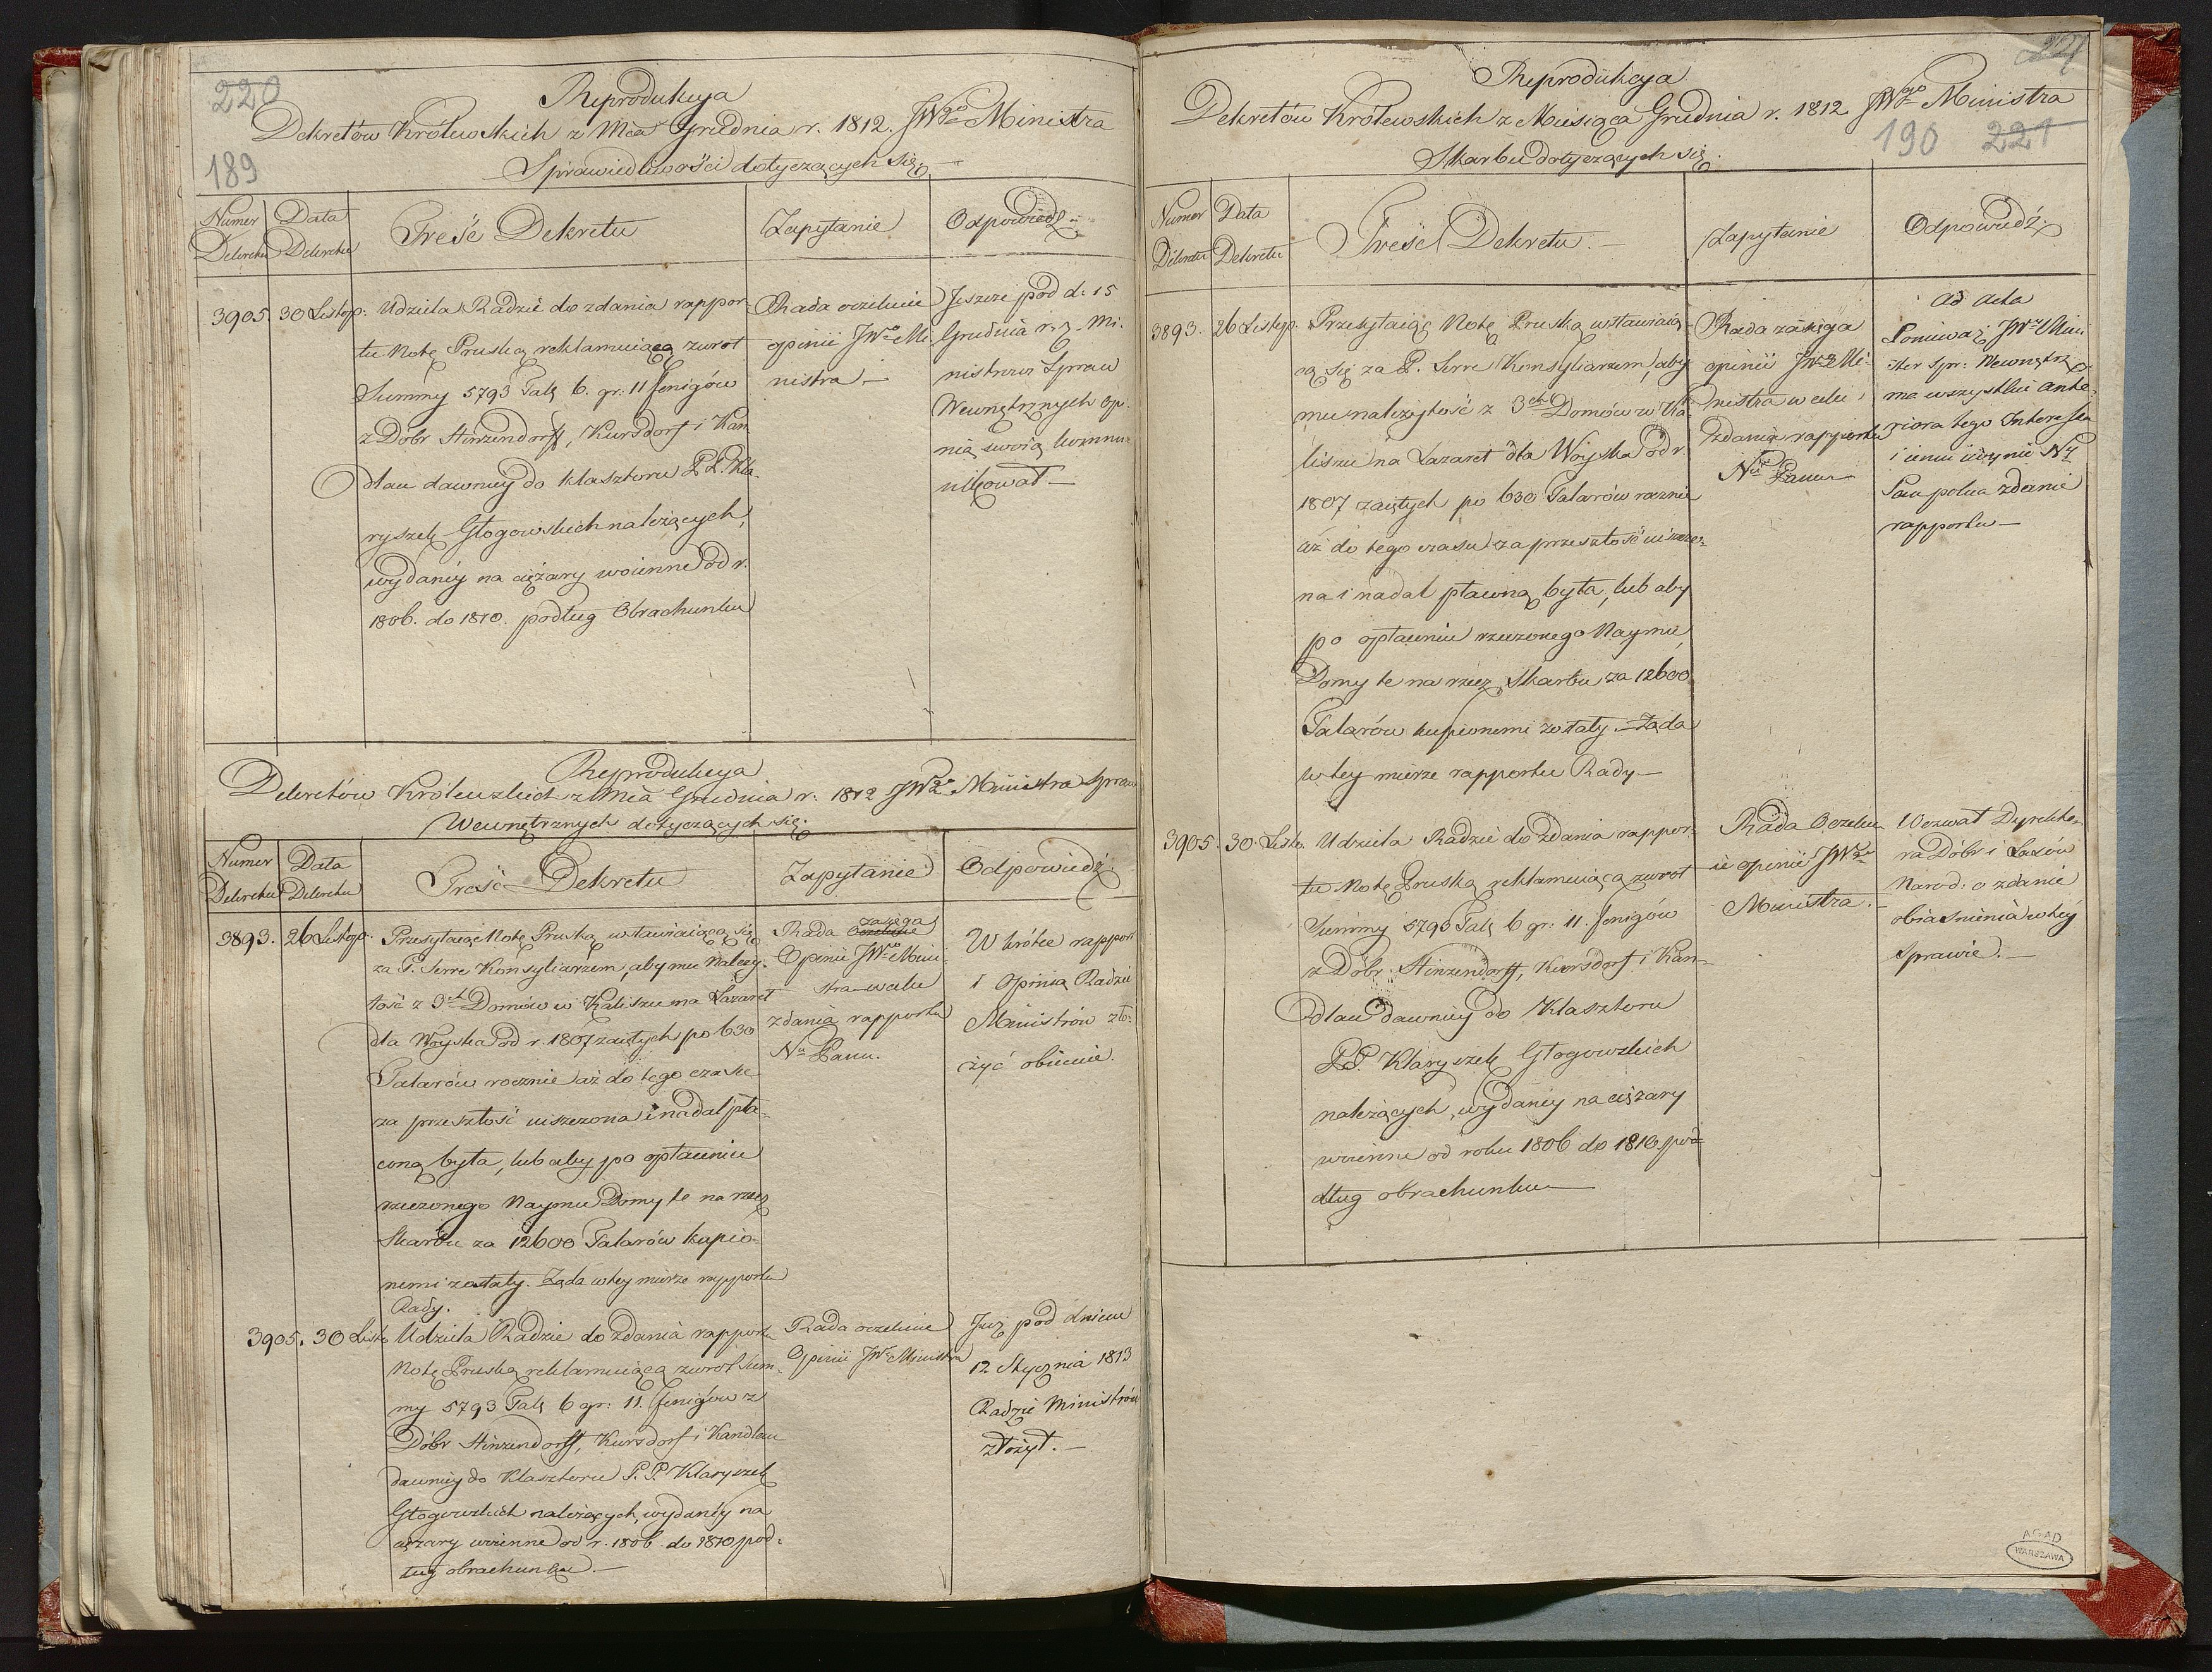 220
Reprodukcya
Dekretów Królewskich z Mca Grudnia r. 1812. JWgo Ministra
189
Sprawiedliwości dotyczących się. —
Numer Dekretu
Data Dekretu
Treść Dekretu
Zapytanie
Odpowiedź
3905. 30 Listop.
Udziela Radzie do zdania rappor-
tu Notę Pruską reklamuiącą zwrot
Summy 5793 Tal. 6. gr: 11 fenigów
z Dóbr Hinzendorff, Kursdorf i Kan
dlau dawniey do klasztoru P. P. Kla-
ryszek Głogowskich należących,
wydaney na ciężary woienne od r.
1806. do 1810. podług Obrachunku
Rada oczekuie
opinii JWgo Mi-
nistra. —
Jeszcze pod d. 15
Grudnia r. z. Mi-
nistrowi Spraw
Wewnętrznych opi-
nią swoią kommu-
nikował —
Reprodukcya
Dekretów Królewskich z Mca Grudnia r. 1812 JWgo Ministra Spraw
Wewnętrznych dotyczących się.
Numer Dekretu
Data Dekretu
Treść Dekretu
Zapytanie
Odpowiedź
3893. 26 Listop.
Przesyłaiąc Notę Pruską wstawiaiącą się
za P. Serre Konsyliarzem, aby mu należy-
tość z 3ch Domów w Kaliszu na Lazaret
dla Woyska od r. 1807 zaiętych po 630
Talarów rocznie aż do tego czasu
za przeszłość uiszczona i nadal pła-
coną była, lub aby po opłaceniu
rzeczonego Naymu Domy te na rzecz
Skarbu za 12600 Talarów kupio-
nemi zostały. Żąda w tey mierze rapportu
Rady.
Rada oczekuie zasięga
Opinii JWgo Mini-
stra w celu
zdania rapportu
Nu Panu.
W krótce rapport
i opinią Radzie
Ministrów zło-
żyć obiecuie.
3905. 30 Listo.
Udziela Radzie do zdania rapportu
Notę Pruską reklamuiącą zwrot Sum-
my 5793 Tal. 6 gr: 11. fenigów z
Dóbr Hinzendorff, Kursdorf i Kandlau
dawniey do Klasztoru P. P. Klaryszek
Głogowskich należących, wydaney na
ciężary woienne od r. 1806 do 1810 pod-
ług obrachunku. —
Rada oczekuie
Opinii JWgo Ministra
Już pod dniem
12 Stycznia 1813
Radzie Ministrów
złożył. —
Reprodukcya
Dekretów Królewskich z Miesiąca Grudnia r. 1812 JWgo Ministra
190 221
Skarbu dotyczących się.
Numer Dekretu
Data Dekretu
Treść Dekretu. —
Zapytanie
Odpowiedź.
3893. 26 Listop.
Przesyłaiąc Notę Pruską wstawiaią-
cą się za P. Serre Konsyliarzem, aby
mu należytość z 3ch Domów w Ka-
liszu na Lazaret dla Woyska od r.
1807 zaiętych po 630 Talarów rocznie
aż do tego czasu za przeszłość uiszczo-
na i nadal płaconą była, lub aby
po opłaceniu rzeczonego Naymu,
Domy te na rzecz Skarbu za 12600
Talarów kupionemi zostały. — Żąda
w tey mierze rapportu Rady —
Rada zasięga
opinii JWgo Mi-
nistra w celu
zdania rapportu
Nu Panu —
ad acta
Ponieważ JWy Mini-
ster Spr: Wewnętrz.
ma wszystkie ante-
riora tego Interessu
i iemu iedynie Ny
Pan poleca zdanie
rapportu —
3905. 30. Listo.
Udziela Radzie do zdania rappor-
tu Notę Pruską reklamuiącą zwrot
Summy 5793 Tal. 6 gr: 11. fenigów
z Dóbr Hinzendorff, Kursdorf i Kan-
dlau dawniey do Klasztoru
P. P. Klaryszek Głogowskich
należących, wydaney na ciężary
woienne od roku 1806 do 1810. po-
dług obrachunku —
Rada Oczeku-
ie opinii JWgo
Ministra. —
Wezwał Dyrekto-
ra Dóbr i Lasów
Narod: o zdanie
obiaśnienia w tey
sprawie. —
AGAD
WARSZAWA